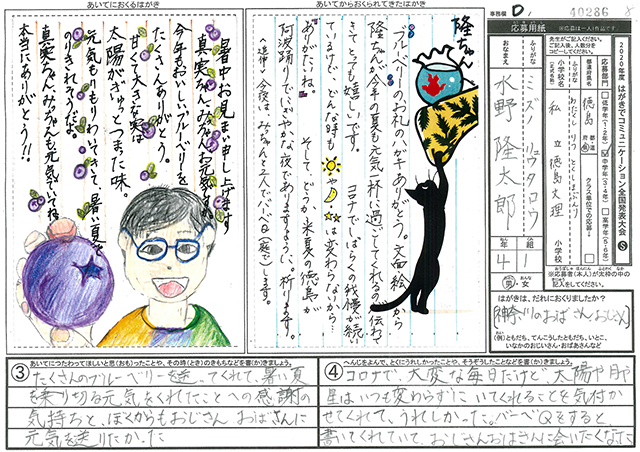 あいてにおくるはがき
暑中お見まい申し上げます
真実ちゃん、みぃちゃん、お元気ですか。
今年もおいしいブルーベリーを
たくさんありがとう。
甘くて大きな実は
太陽がぎゅっとつまった味。
元気もりもりわいてきて、暑い夏も
のりきれそうだよ。
真実ちゃん、みぃちゃんも元気でいてね。
本当にありがとう!!
あいてからおくられてきたはがき
隆ちゃんへ
ブルーベリーのお礼のハガキありがとう。文面・絵から
隆ちゃんが今年の夏も元気一杯に過ごしてくれるのが伝わっ
てきてとても嬉しいです。コロナでしばらくの我慢が続い
ているけど、どんな時も
や
は変わらないから…
ありがたいね。そして、どうか、来夏の徳島が
阿波踊りでにぎやかな夜でありますように。祈ります。
〈追伸〉今夜は、みぃちゃんと2人でバーベQ(庭で)します。
事務欄 D 40286
応募用紙
※応募者は一人1作品です
先生がご記入ください。
ご記入後、人数分を
コピーしてください。
2020年度 はがきでコミュニケーション全国発表大会 S
応募部門
低学年(1・2年)
中学年(3・4年)
高学年(5・6年)
都道府県名
徳島
都・道
府・県
クラス単位での応募
小学校名
(正式名称)
ふりがな
私立徳島文理
小学校
おなまえ
ふりがな
ミズノ リュウタロウ
水野 隆太郎
4年
1組
男・女
※応募者(本人)が太枠の中の
記入をしてください。
はがきは、だれにおくりましたか?
神奈川のおばさんおじさん
(例)ともだち、てんこうしたともだち、いとこ、
いなかのおじいさん・おばあさんなど
③ あいてにつたわってほしいと思(おも)ったことや、その時(とき)のきもちなどを書(か)きましょう。
たくさんのブルーベリーを送ってくれて、暑い夏
を乗り切る元気をくれたことへの感謝の
気持ちと、ぼくからもおじさんおばさんに
元気を送りたかった
④ へんじをよんで、とくにうれしかったことや、そうぞうしたことなどを書(か)きましょう。
コロナで、大変な毎日だけど、太陽や月や
星はいつも変わらずにいてくれることを気付か
せてくれて、うれしかった。バーベQをすると、
書いてくれていて、おじさんおばさんに会いたくなった